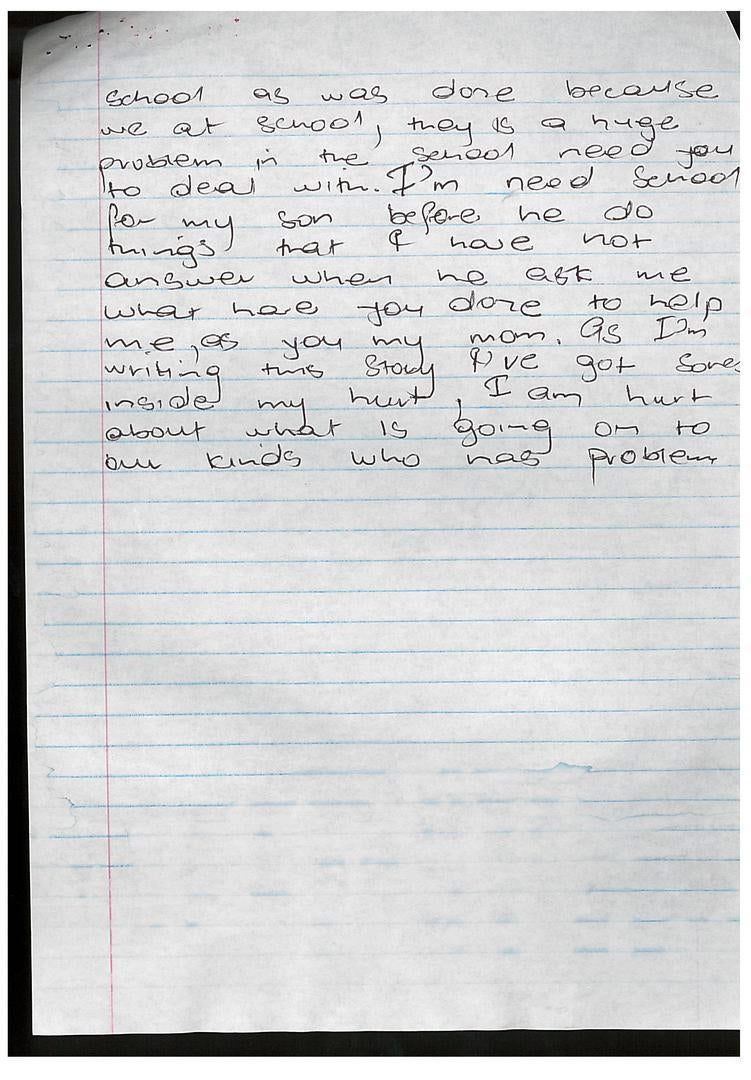 school as was done because
we at school, they is a huge
problem in the school need you
to deal with. I'm need school
for my son before he do
things that I have not
answer when he ask me
what have you done to help
me, as you my mom. As I'm
writing this Story I've got sores
inside my hurt, I am hurt
about what is going on to
our kinds who has problem,